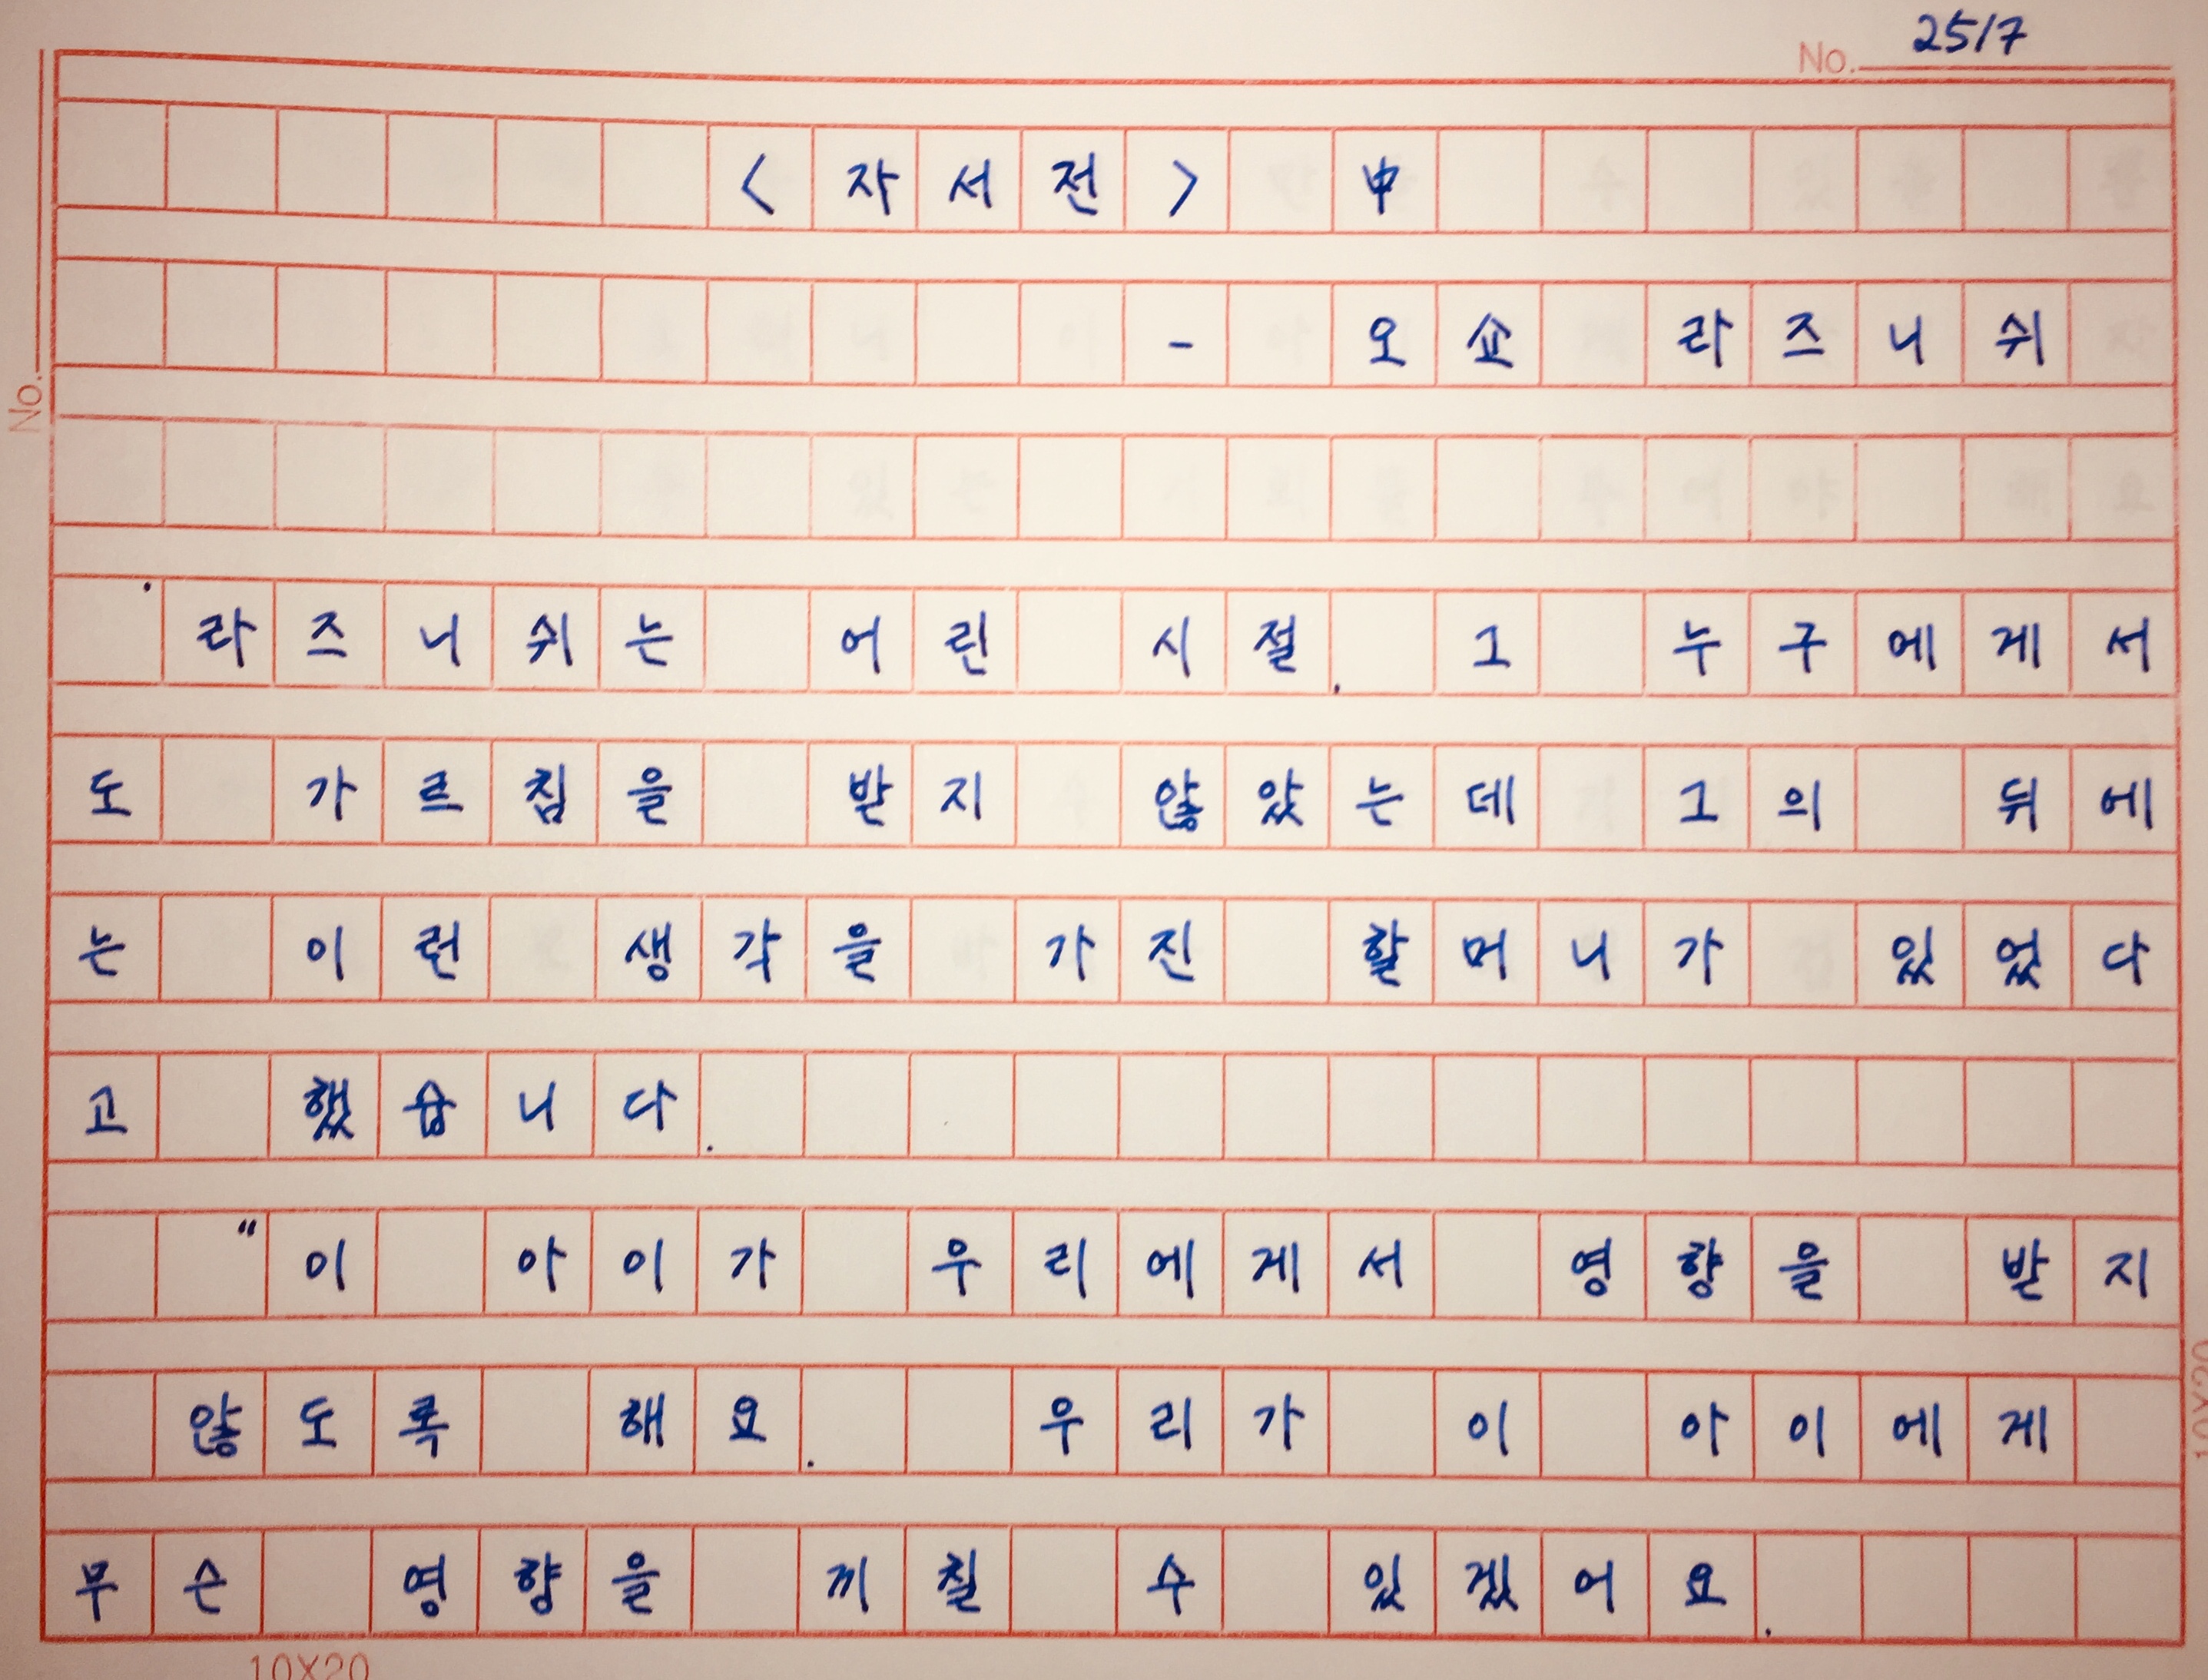 No. 2517
<자서전> 中
- 오쇼 라즈니쉬
라즈니쉬는 어린 시절. 그 누구에게서
도 가르침을 받지 않았는데 그의 뒤에
는 이런 생각을 가진 할머니가 있었다
고 했습니다.
"이 아이가 우리에게서 영향을 받지
않도록 해요. 우리가 이 아이에게
무슨 영향을 끼칠 수 있겠어요.
No.
10X20
10X20